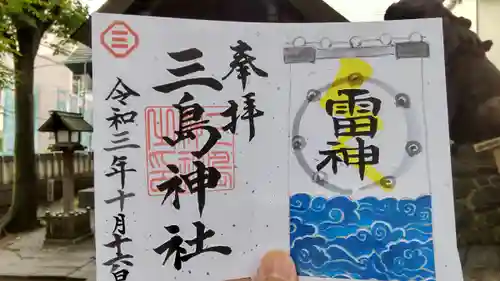 奉拝
三島神社
令和三年十月十六日
雷神